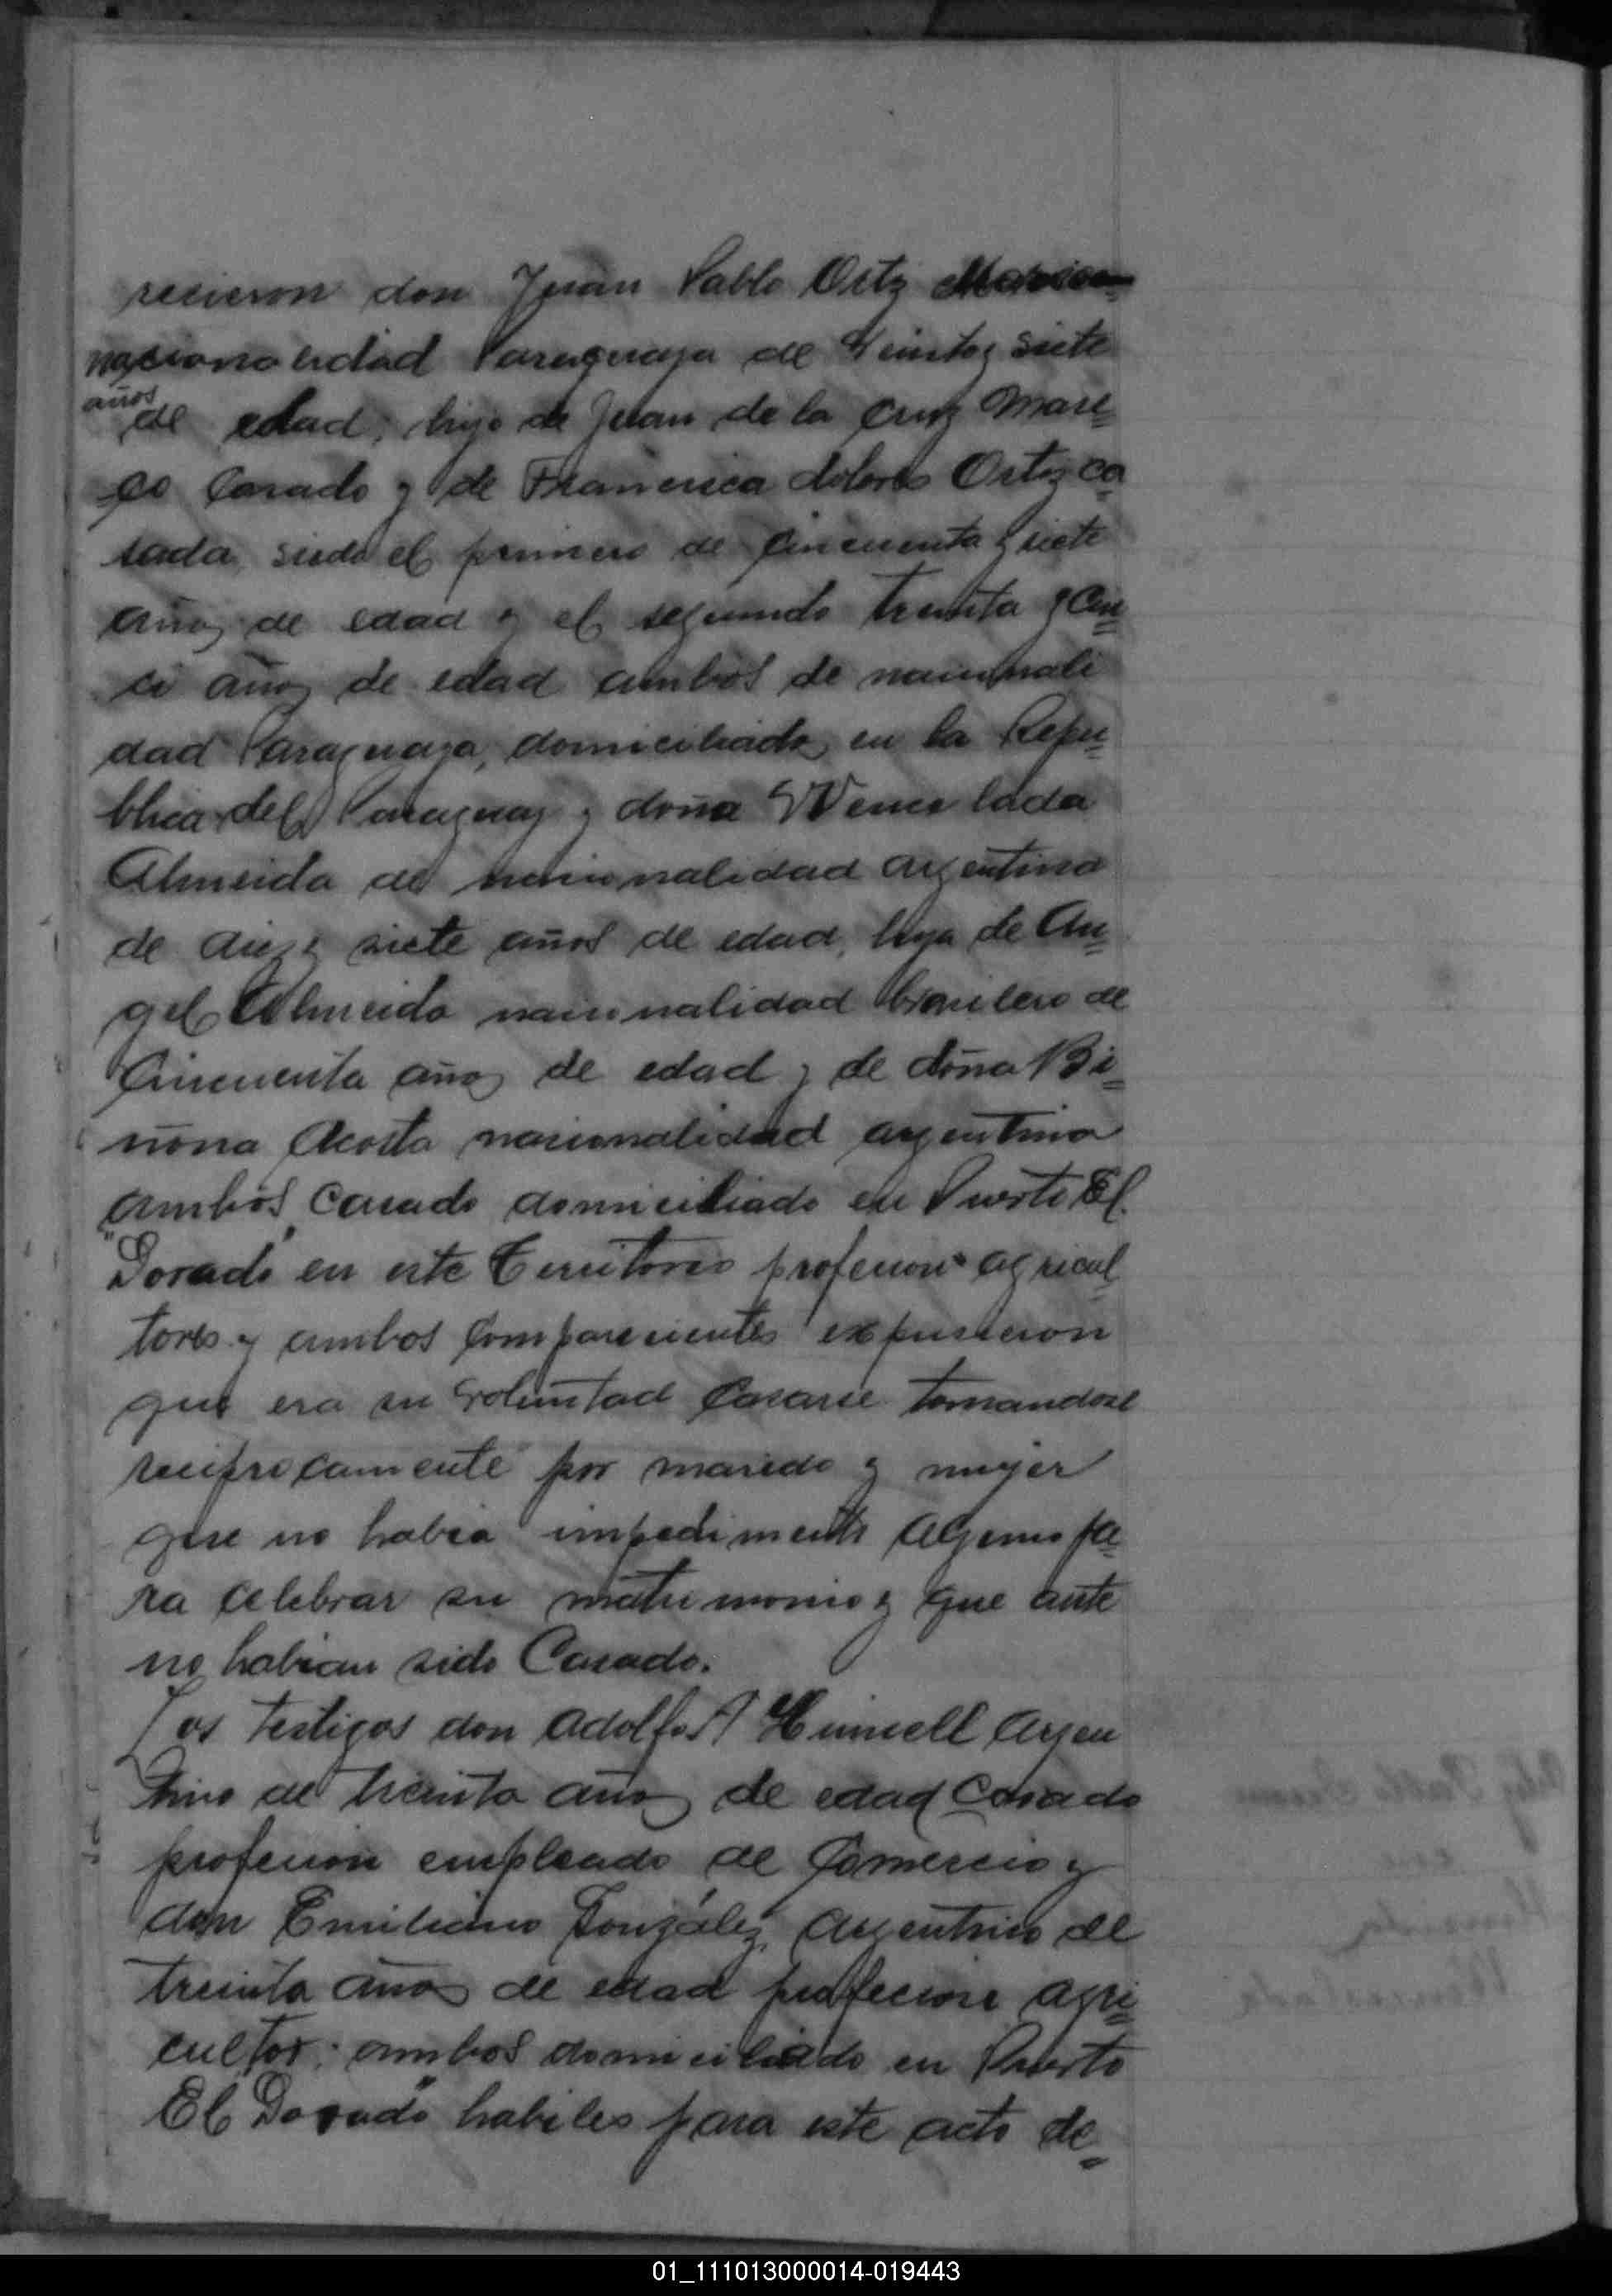 recieron don Juan Pablo Ortiz
nacionalidad Paraguaya de Veintey siete
años
de edad, hijo de Juan de la Cruz Mare=
co Casado y de Francisca dolores Ortiz ca
sada, siedo el primero de Cincuenta y siete
años de edad y el segundo treinta y Cin=
co años de edad ambos de nacionali
dad Paraguaya, domiciliado en la Repu=
blica del Paraguay y doña Wenceslada
Almeida de nacionalidad argentina
de diez y siete años de edad, hija de An=
gel Almeida nacionalidad brasilero de
Cincuenta años de edad y de doña
Acosta nacionalidad argentina
ambos Casado domiciliado en Puerto El
"Dorado" en este Territorio profesion agricul
tores y ambos Comparecientes expusieron
que era su voluntad Casarse tomandose
reciprocamente por marido y mujer
que no habia impedimento alguno pa=
ra celebrar su matrimonio y que ante
no habian sido Casado.
Los testigos don Adolfo A argen
tino de treinta años de edad Casado
profesion empleado de Comercio y
don Emiliano González, argentino de
treinta años de edad profecion agri=
cultor, ambos domiciliado en Puerto
El Dorado" habiles para este acto de=
01_111013000014-019443